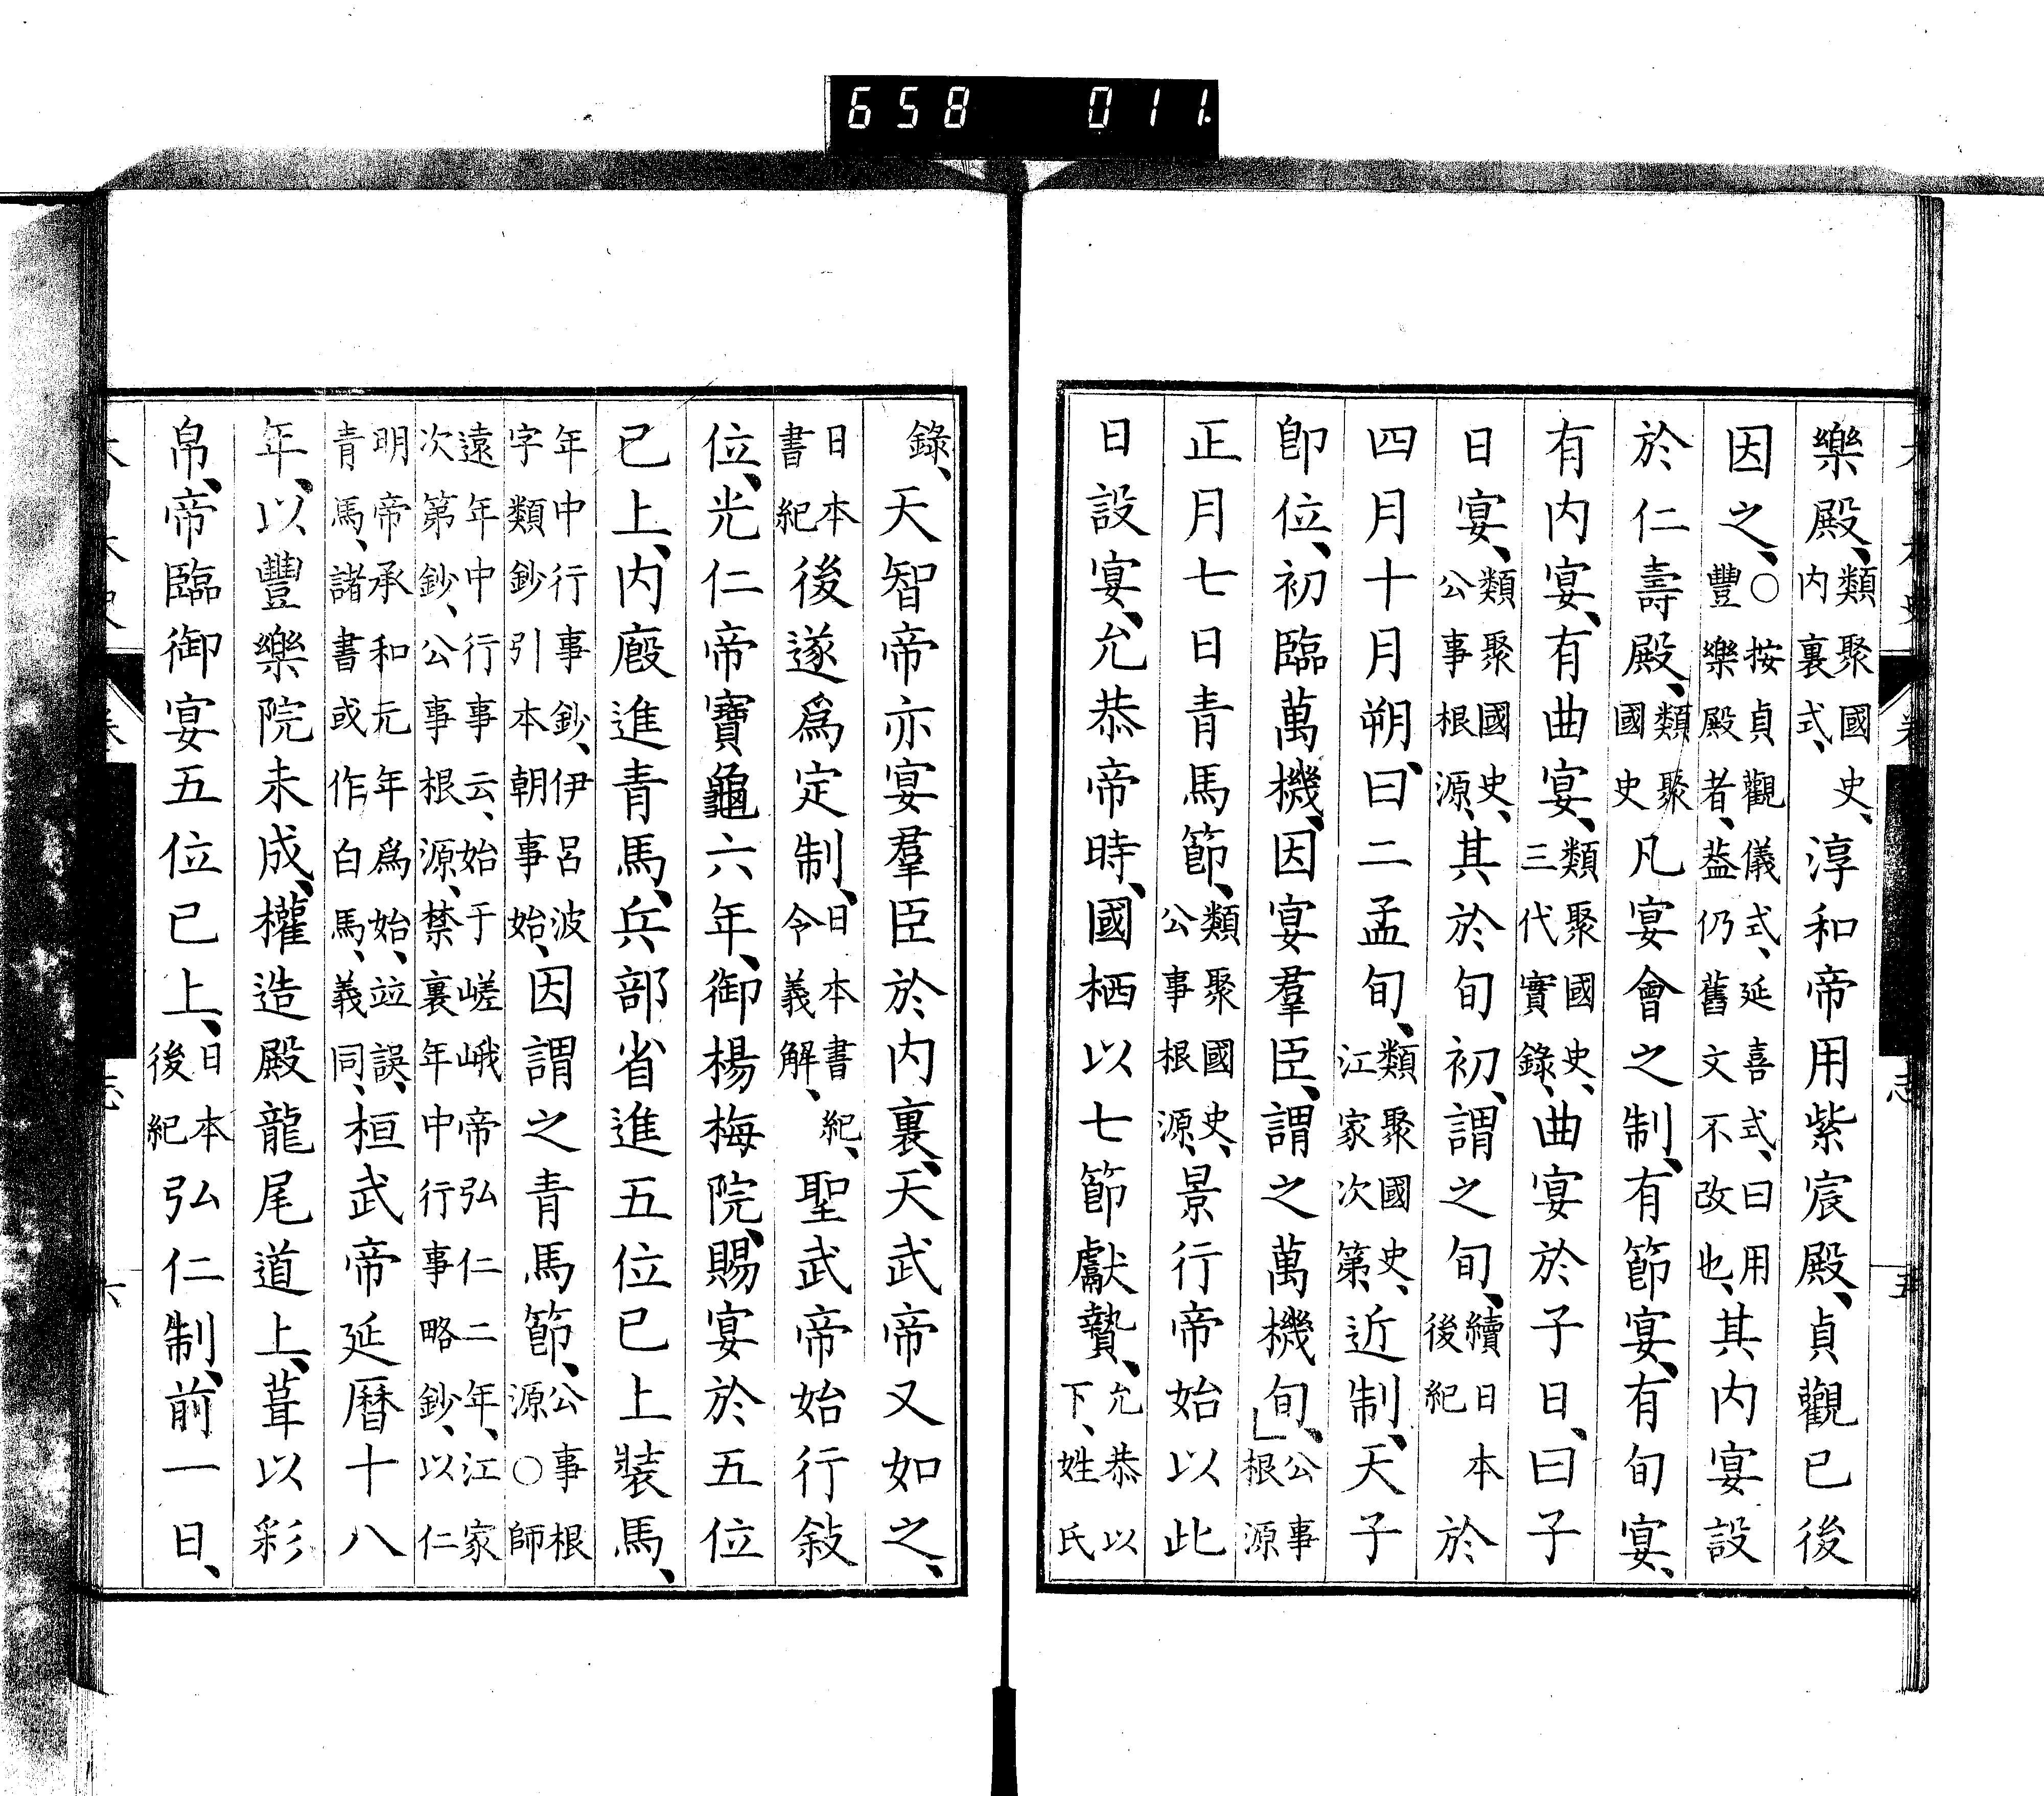 658 011.
樂殿、類聚國史、内裏式、淳和帝用紫宸殿、貞觀已後
因之、○按貞觀儀式、延喜式、曰用豐樂殿者、蓋仍舊文不改也、其内宴設
於仁壽殿、類聚國史凡宴會之制、有節宴、有旬宴、
有内宴、有曲宴、類聚國史、三代實錄、曲宴於子日、曰子
日宴、類聚國史、公事根源、其於旬初、謂之旬、續日本後紀於
四月十月朔、曰二孟旬、類聚國史、江家次第、近制、天子
卽位、初臨萬機、因宴羣臣、謂之萬機旬、公事根源
正月七日青馬節、類聚國史、公事根源、景行帝始以此
日設宴、允恭帝時、國栖以七節獻贄、允恭以下、姓氏
錄、天智帝亦宴羣臣於内裏、天武帝又如之、
日本書紀後遂爲定制、日本書紀、令義解、聖武帝始行敍
位、光仁帝寶龜六年、御楊梅院、賜宴於五位
已上、内廄進青馬、兵部省進五位已上裝馬、
年中行事鈔、伊呂波字類鈔引本朝事始、因謂之青馬節、公事根源○師
遠年中行事云、始于嵯峨帝弘仁二年、江家次第鈔、公事根源、禁裏年中行事略鈔、以仁
明帝承和元年爲始、竝誤、青馬、諸書或作白馬、義同、桓武帝延曆十八
年、以豐樂院未成、權造殿龍尾道上、葺以彩
帛、帝臨御宴五位已上、日本後紀弘仁制、前一日、